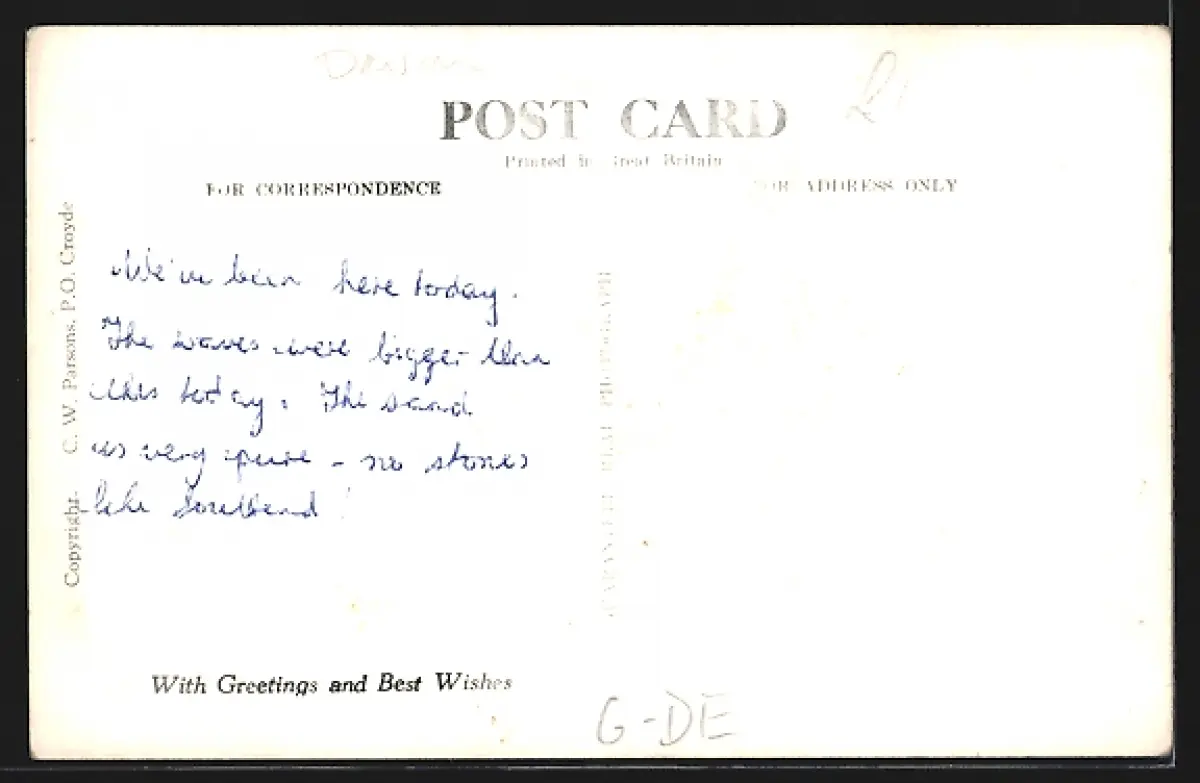 Devon
£1
POST CARD
Printed in Great Britain
FOR CORRESPONDENCE
FOR ADDRESS ONLY
Copyright. C. W. Parsons. P.O. Croyde
We've been here today.
The waves were bigger than
this today. The sand
is very pure - no stones
like
REAL PHOTOGRAPH
With Greetings and Best Wishes
G-DE